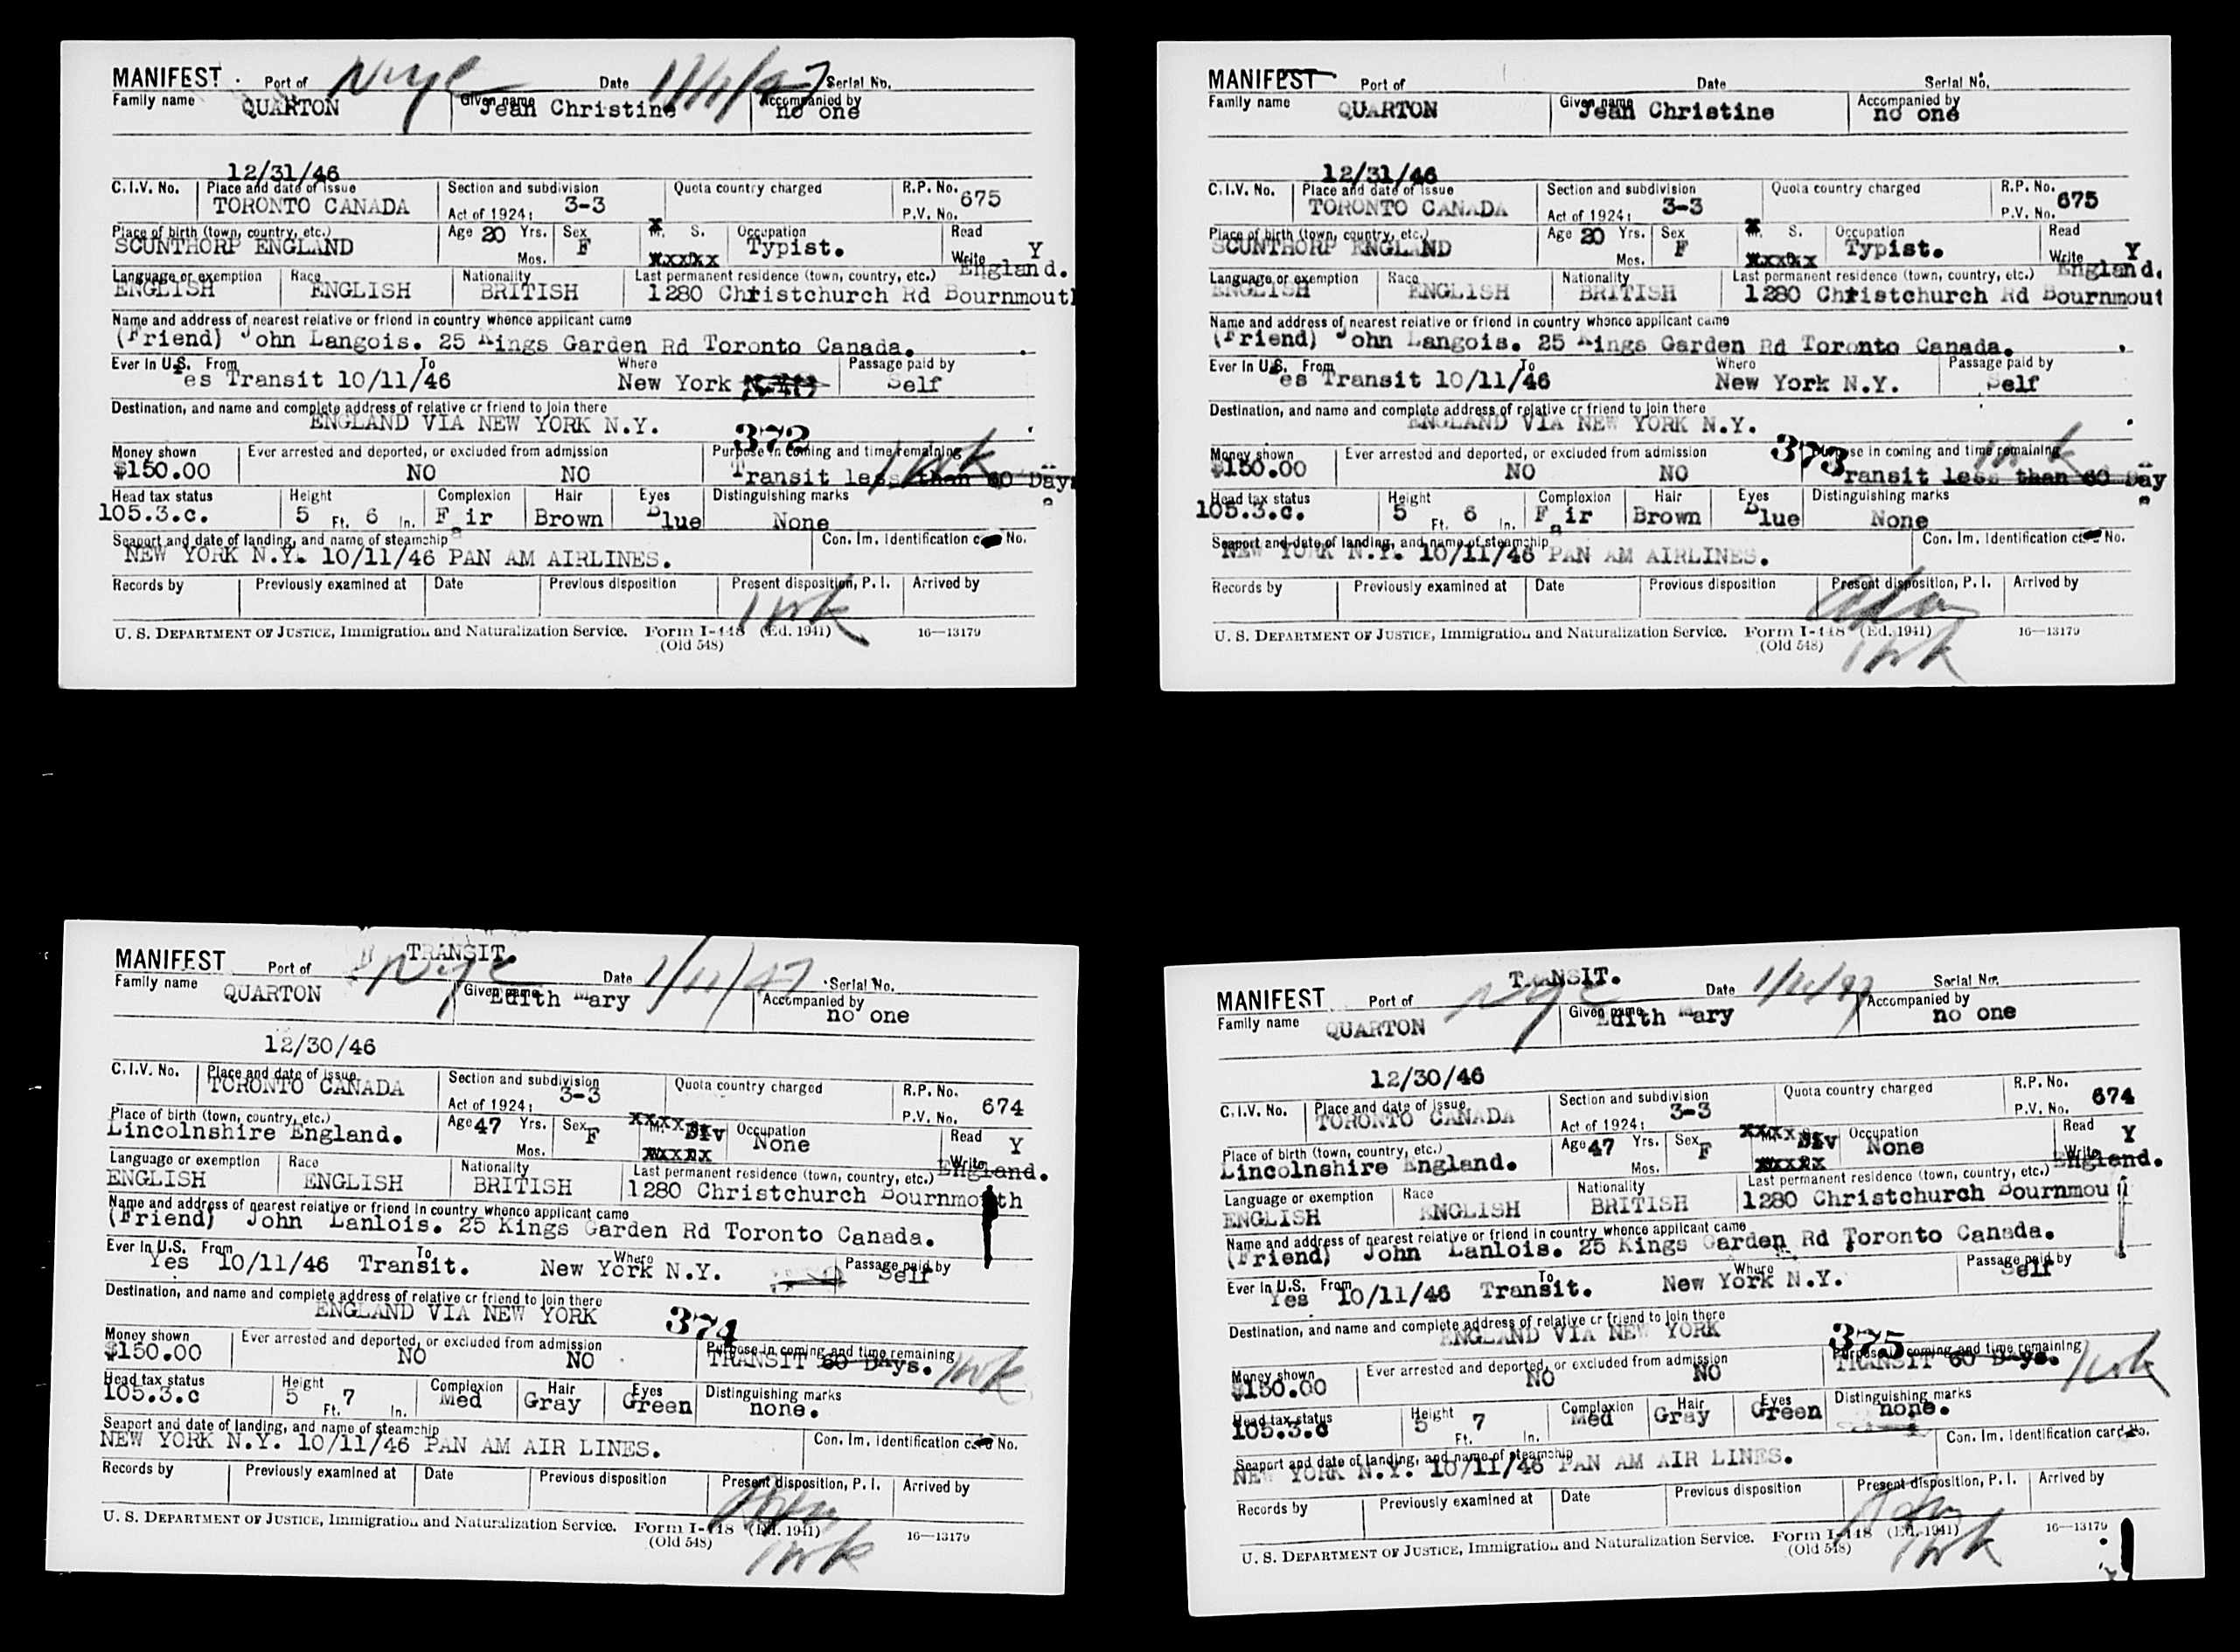 MANIFEST Port of Date 1/11/47 Serial No.
Family name QUARTON Given name Jean Christine Accompanied by no one
12/31/46
C.I.V. No. Place and date of issue TORONTO CANADA Section and subdivision Act of 1924: 3-3 Quota country charged R.P. No. P.V. No. 675
Place of birth (town, country, etc.) SCUNTHORP ENGLAND Age 20 Yrs. Mos. Sex F M. S. x xxxxx Occupation Typist. Read Write Y
Language or exemption ENGLISH Race ENGLISH Nationality BRITISH Last permanent residence (town, country, etc.) 1280 Christchurch Rd Bournmouth England.
Name and address of nearest relative or friend in country whence applicant came
(Friend) John Langois. 25 Kings Garden Rd Toronto Canada.
Ever in U.S. From To Where Passage paid by
es Transit 10/11/46 New York Self
Destination, and name and complete address of relative or friend to join there
ENGLAND VIA NEW YORK N.Y.
372
Money shown $150.00 Ever arrested and deported, or excluded from admission NO NO Purpose in coming and time remaining Transit less than 60 Days
Head tax status 105.3.c. Height 5 Ft. 6 In. Complexion Fair Hair Brown Eyes Blue Distinguishing marks None
Seaport and date of landing, and name of steamship Con. Im. Identification card No.
NEW YORK N.Y. 10/11/46 PAN AM AIRLINES.
Records by Previously examined at Date Previous disposition Present disposition, P. I. Arrived by
U. S. DEPARTMENT OF JUSTICE, Immigration and Naturalization Service. Form I-448 (Ed. 1941) 16—13179
(Old 548)
MANIFEST Port of Date Serial No.
Family name QUARTON Given name Jean Christine Accompanied by no one
12/31/46
C.I.V. No. Place and date of issue TORONTO CANADA Section and subdivision Act of 1924: 3-3 Quota country charged R.P. No. P.V. No. 675
Place of birth (town, country, etc.) SCUNTHORP ENGLAND Age 20 Yrs. Mos. Sex F M. S. x xxxxx Occupation Typist. Read Write Y
Language or exemption ENGLISH Race ENGLISH Nationality BRITISH Last permanent residence (town, country, etc.) 1280 Christchurch Rd Bournmout England.
Name and address of nearest relative or friend in country whence applicant came
(Friend) John Langois. 25 Kings Garden Rd Toronto Canada.
Ever in U.S. From To Where Passage paid by
es Transit 10/11/46 New York N.Y. Self
Destination, and name and complete address of relative or friend to join there
ENGLAND VIA NEW YORK N.Y.
373
Money shown $150.00 Ever arrested and deported, or excluded from admission NO NO Purpose in coming and time remaining Transit less than 60 Day
Head tax status 105.3.c. Height 5 Ft. 6 In. Complexion Fair Hair Brown Eyes Blue Distinguishing marks None
Seaport and date of landing, and name of steamship Con. Im. Identification card No.
NEW YORK N.Y. 10/11/46 PAN AM AIRLINES.
Records by Previously examined at Date Previous disposition Present disposition, P. I. Arrived by
U. S. DEPARTMENT OF JUSTICE, Immigration and Naturalization Service. Form I-448 (Ed. 1941) 16—13179
(Old 548)
TRANSIT.
MANIFEST Port of Date 1/11/47 Serial No.
Family name QUARTON Given name Edith Mary Accompanied by no one
12/30/46
C.I.V. No. Place and date of issue TORONTO CANADA Section and subdivision Act of 1924: 3-3 Quota country charged R.P. No. P.V. No. 674
Place of birth (town, country, etc.) Lincolnshire England. Age 47 Yrs. Mos. Sex F xxxx Div xxxxx Occupation None Read Write Y
Language or exemption ENGLISH Race ENGLISH Nationality BRITISH Last permanent residence (town, country, etc.) 1280 Christchurch Bournmouth England.
Name and address of nearest relative or friend in country whence applicant came
(Friend) John Lanlois. 25 Kings Garden Rd Toronto Canada.
Ever in U.S. From To Where Passage paid by
Yes 10/11/46 Transit. New York N.Y. Self
Destination, and name and complete address of relative or friend to join there
ENGLAND VIA NEW YORK
374
Money shown $150.00 Ever arrested and deported, or excluded from admission NO NO Purpose in coming and time remaining TRANSIT 60 Days.
Head tax status 105.3.c Height 5 Ft. 7 In. Complexion Med Hair Gray Eyes Green Distinguishing marks none.
Seaport and date of landing, and name of steamship Con. Im. Identification card No.
NEW YORK N.Y. 10/11/46 PAN AM AIR LINES.
Records by Previously examined at Date Previous disposition Present disposition, P. I. Arrived by
U. S. DEPARTMENT OF JUSTICE, Immigration and Naturalization Service. Form I-448 (Ed. 1941) 16—13179
(Old 548)
TRANSIT.
MANIFEST Port of Date 1/11/47 Serial No.
Family name QUARTON Given name Edith Mary Accompanied by no one
12/30/46
C.I.V. No. Place and date of issue TORONTO CANADA Section and subdivision Act of 1924: 3-3 Quota country charged R.P. No. P.V. No. 674
Place of birth (town, country, etc.) Lincolnshire England. Age 47 Yrs. Mos. Sex F xxxx Div xxxxx Occupation None Read Write Y
Language or exemption ENGLISH Race ENGLISH Nationality BRITISH Last permanent residence (town, country, etc.) 1280 Christchurch Bournmou England.
Name and address of nearest relative or friend in country whence applicant came
(Friend) John Lanlois. 25 Kings Garden Rd Toronto Canada.
Ever in U.S. From To Where Passage paid by
Yes 10/11/46 Transit. New York N.Y. Self
Destination, and name and complete address of relative or friend to join there
ENGLAND VIA NEW YORK
375
Money shown $150.00 Ever arrested and deported, or excluded from admission NO NO Purpose in coming and time remaining TRANSIT 60 Days.
Head tax status 105.3.c Height 5 Ft. 7 In. Complexion Med Hair Gray Eyes Green Distinguishing marks none.
Seaport and date of landing, and name of steamship Con. Im. Identification card No.
NEW YORK N.Y. 10/11/46 PAN AM AIR LINES.
Records by Previously examined at Date Previous disposition Present disposition, P. I. Arrived by
U. S. DEPARTMENT OF JUSTICE, Immigration and Naturalization Service. Form I-448 (Ed. 1941) 16—13179
(Old 548)